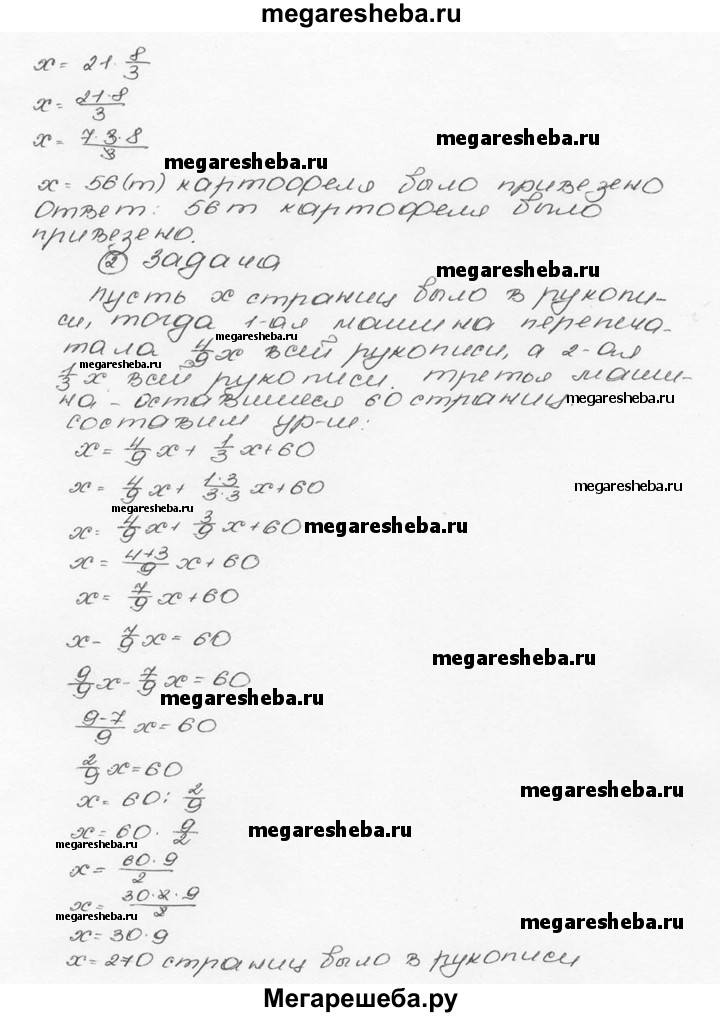 megaresheba.ru
x = 21 · 8/3
x = 21·8/3
x = 7·3·8/3
megaresheba.ru
megaresheba.ru
x = 56(т) картофеля было привезено
Ответ: 56 т картофеля было
привезено.
② Задача
megaresheba.ru
пусть x страниц было в рукопи-
си, тогда 1-ая машина перепеча-
megaresheba.ru
тала 4/9 x всей рукописи, а 2-ая
megaresheba.ru
1/3 x всей рукописи. третья маши-
на - оставшиеся 60 страниц
megaresheba.ru
составим ур-ие:
x = 4/9 x + 1/3 x + 60
x = 4/9 x + 1·3/3·3 x + 60
megaresheba.ru
x = 4/9 x + 3/9 x + 60
megaresheba.ru
x = 4+3/9 x + 60
x = 7/9 x + 60
x - 7/9 x = 60
megaresheba.ru
9/9 x - 7/9 x = 60
megaresheba.ru
9-7/9 x = 60
2/9 x = 60
megaresheba.ru
x = 60 : 2/9
x = 60 · 9/2
megaresheba.ru
megaresheba.ru
x = 60·9/2
x = 30·2·9/2
megaresheba.ru
megaresheba.ru
x = 30·9
x = 270 страниц было в рукописи
Мегарешеба.ру